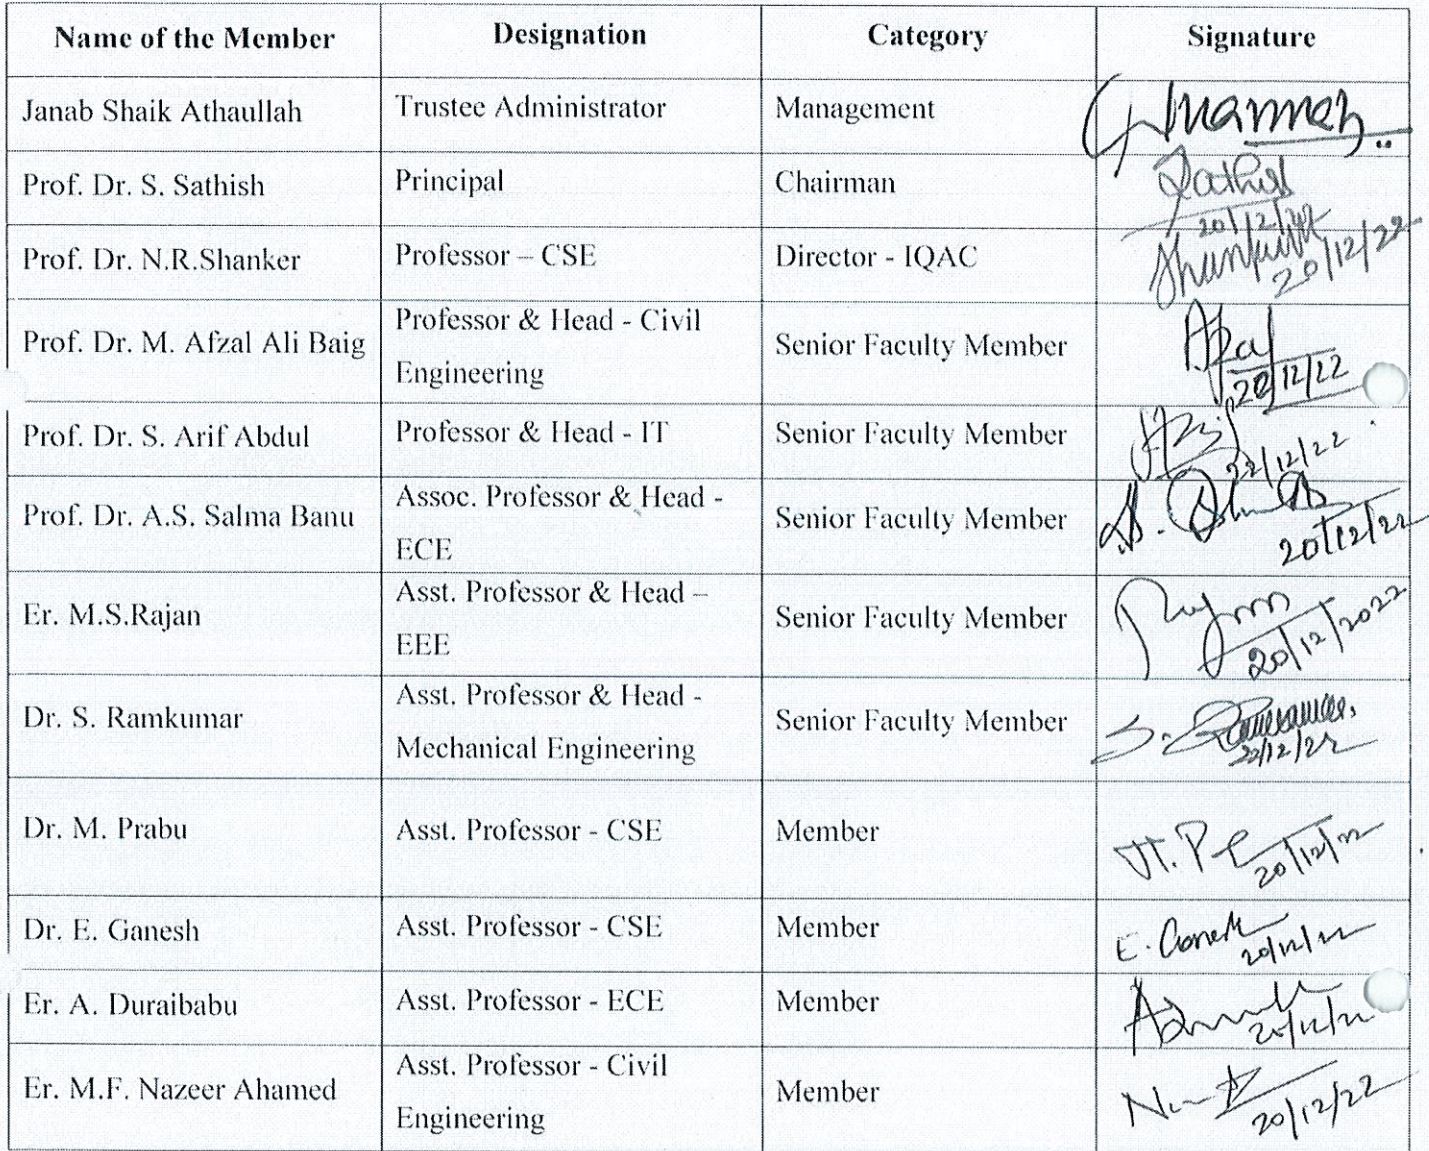 Name of the Member Designation Category Signature
Janab Shaik Athaullah Trustee Administrator Management
Prof. Dr. S. Sathish Principal Chairman Sathish
20/12/22
Prof. Dr. N.R.Shanker Professor – CSE Director - IQAC
20/12/22
Prof. Dr. M. Afzal Ali Baig Professor & Head - Civil Senior Faculty Member
Engineering 20/12/22
Prof. Dr. S. Arif Abdul Professor & Head - IT Senior Faculty Member
22/12/22
Prof. Dr. A.S. Salma Banu Assoc. Professor & Head - Senior Faculty Member
ECE 20/12/22
Er. M.S.Rajan Asst. Professor & Head – Senior Faculty Member
EEE 20/12/2022
Dr. S. Ramkumar Asst. Professor & Head - Senior Faculty Member
Mechanical Engineering 22/12/22
Dr. M. Prabu Asst. Professor - CSE Member
20/12/22
Dr. E. Ganesh Asst. Professor - CSE Member E. Ganesh
20/12/22
Er. A. Duraibabu Asst. Professor - ECE Member
20/12/22
Er. M.F. Nazeer Ahamed Asst. Professor - Civil Member
Engineering 20/12/22